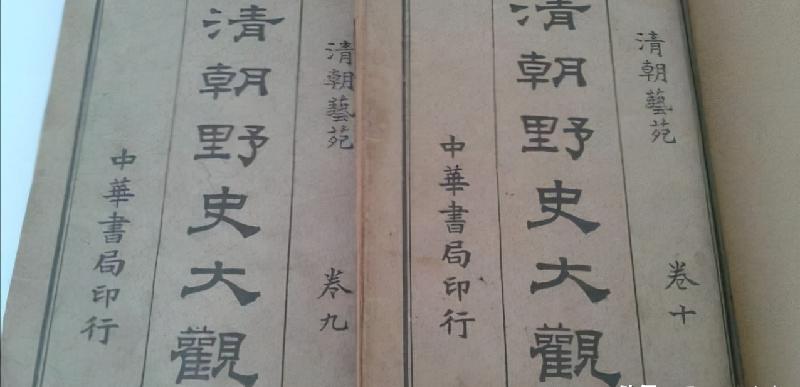 清朝藝苑 卷九
清朝野史大觀
中華書局印行
清朝藝苑 卷十
清朝野史大觀
中華書局印行